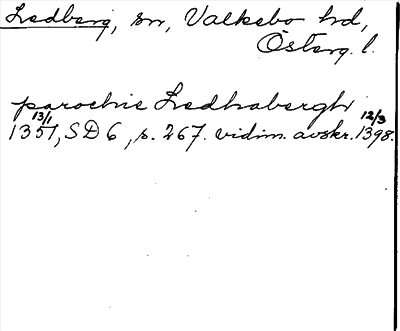 Ledberg, sn, Valkebo hd,
Österg. l.
parochie Ledhabergh
13/1 12/3
1351, SD 6, s. 267. vidim. avskr. 1398.